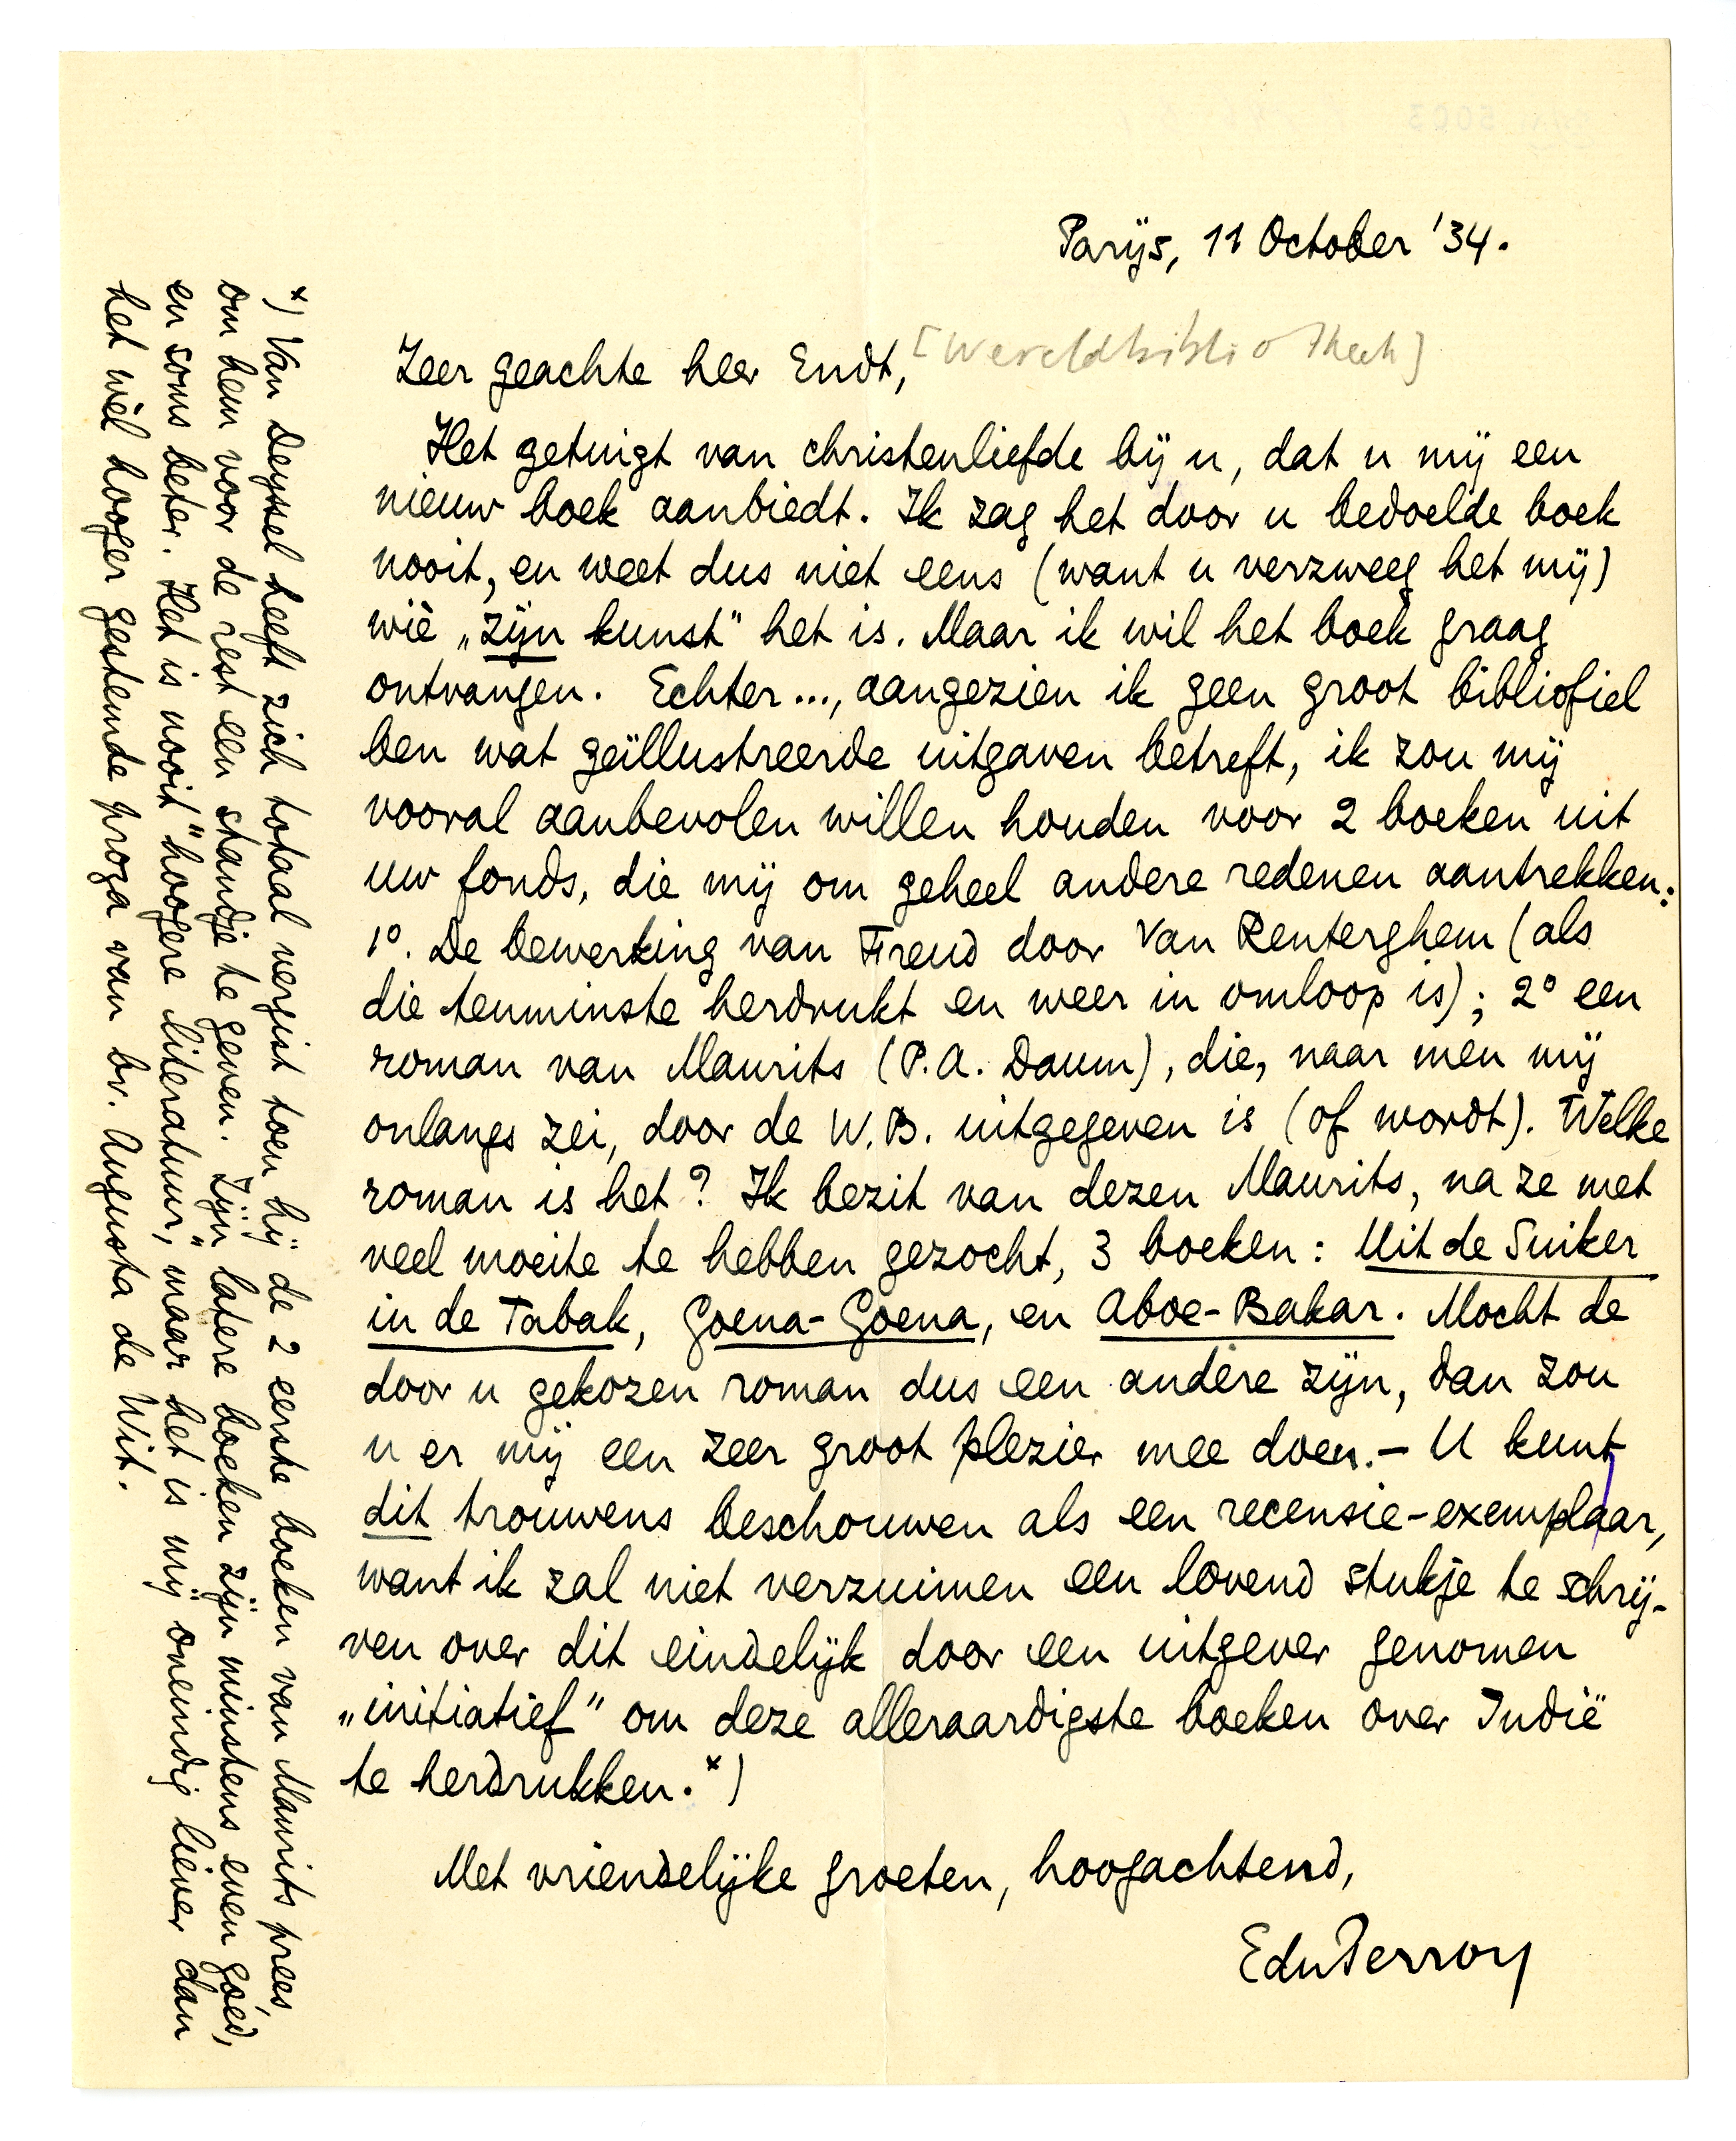 Parijs, 11 October '34.
Zeer geachte heer Endt, [Wereldbibliotheek]
Het getuigt van christenliefde bij u, dat u mij een
nieuw boek aanbiedt. Ik zag het door u bedoelde boek
nooit, en weet dus niet eens (want u verzweeg het mij)
wiè „zijn kunst" het is. Maar ik wil het boek graag
ontvangen. Echter..., aangezien ik geen groot bibliofiel
ben wat geïllustreerde uitgaven betreft, ik zou mij
vooral aanbevolen willen houden voor 2 boeken uit
uw fonds, die mij om geheel andere redenen aantrekken:
1º. De bewerking van Freud door Van Renterghem (als
die tenminste herdrukt en weer in omloop is); 2º een
roman van Maurits (P.A. Daum), die, naar men mij
onlangs zei, door de W.B. uitgegeven is (of wordt). Welke
roman is het? Ik bezit van dezen Maurits, na ze met
veel moeite te hebben gezocht, 3 boeken: Uit de Suiker
in de Tabak, Goena-Goena, en Aboe-Bakar. Mocht de
door u gekozen roman dus een andere zijn, dan zou
u er mij een zeer groot plezier mee doen.- U kunt
dit trouwens beschouwen als een recensie-exemplaar,
want ik zal niet verzuimen een lovend stukje te schrij-
ven over dit eindelijk door een uitgever genomen
„initiatief" om deze alleraardigste boeken over Indië
te herdrukken.*)
Met vriendelijke groeten, hoogachtend,
EduPerron
*) Van Deyssel heeft zich totaal vergist toen hij de 2 eerste boeken van Maurits prees,
om hem voor de rest een standje te geven. Zijn latere boeken zijn minstens even goéd,
en soms beter. Het is nooit "hoogere literatuur," maar het is mij oneindig liever dan
het wèl hooger gestemde proza van bv. Augusta de Wit.